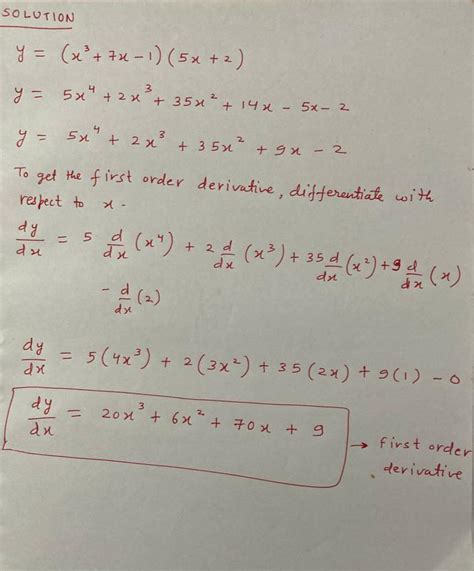 SOLUTION
y = (x³ + 7x - 1) (5x + 2)
y = 5x⁴ + 2x³ + 35x² + 14x - 5x - 2
y = 5x⁴ + 2x³ + 35x² + 9x - 2
To get the first order derivative, differentiate with
respect to x.
dy/dx = 5 d/dx (x⁴) + 2 d/dx (x³) + 35 d/dx (x²) + 9 d/dx (x)
- d/dx (2)
dy/dx = 5(4x³) + 2(3x²) + 35(2x) + 9(1) - 0
dy/dx = 20x³ + 6x² + 70x + 9
→ first order
derivative